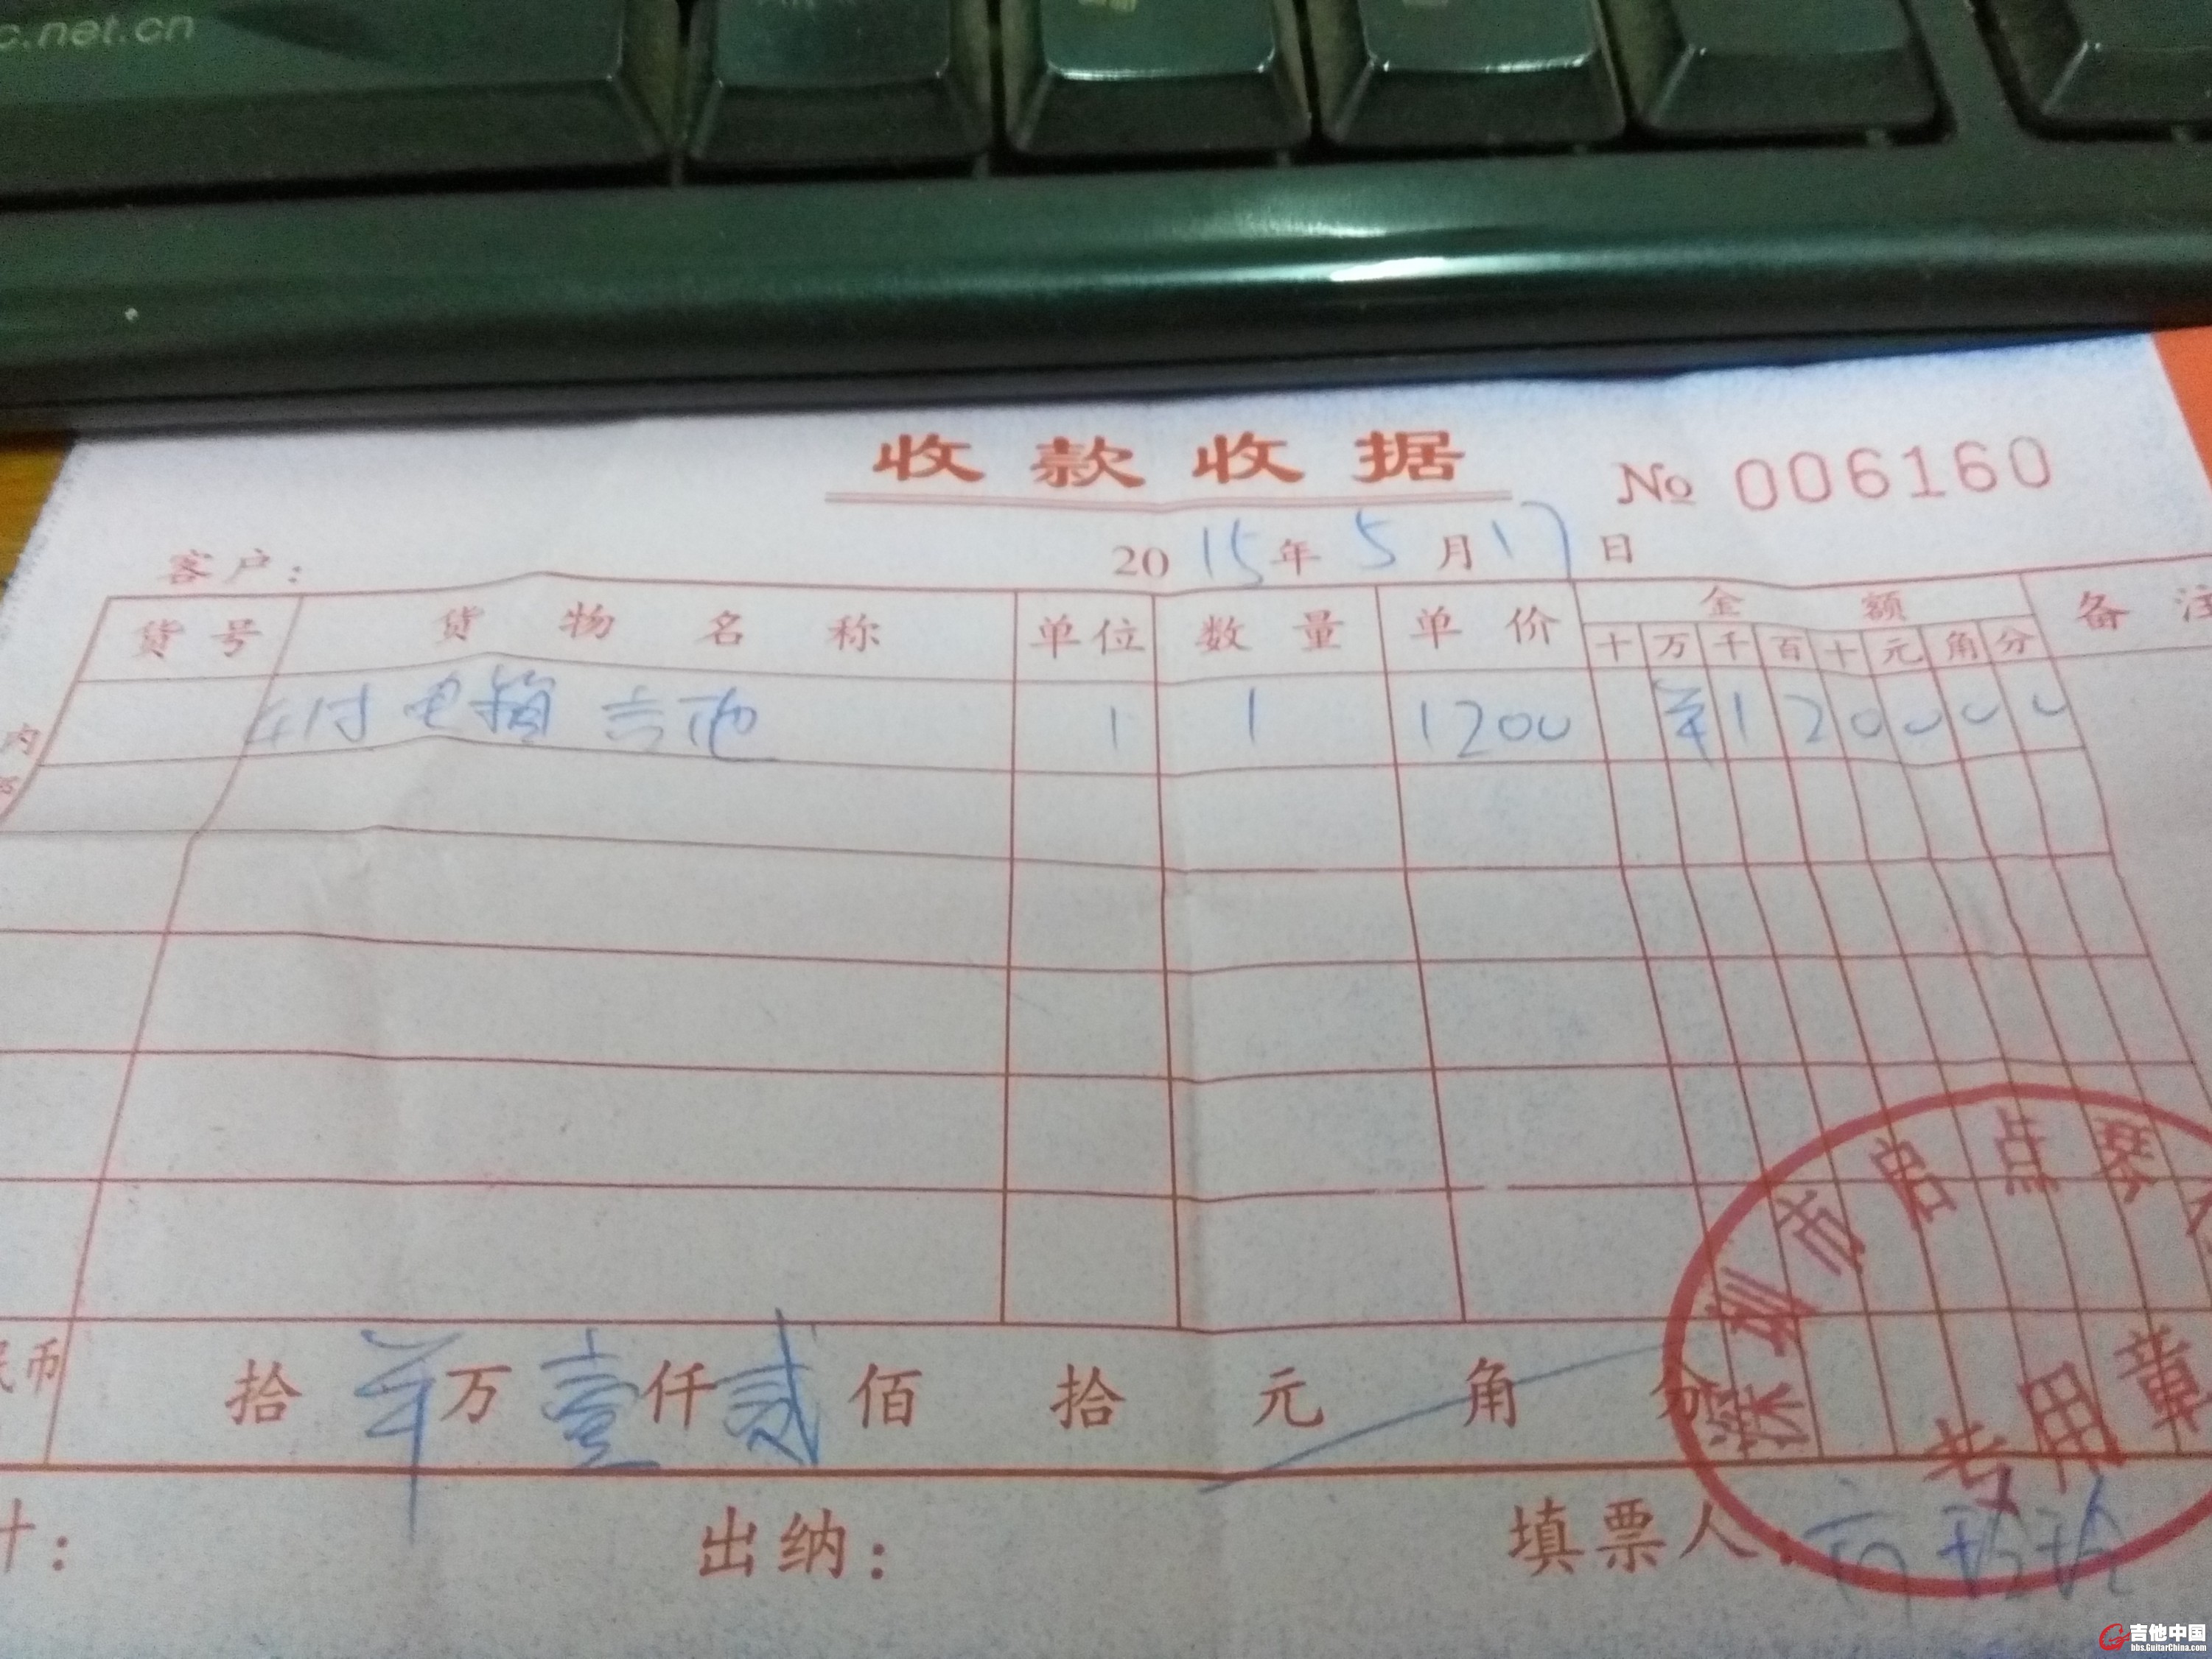 c.net.cn
收款收据
No 006160
客户：
2015年5月17日
货号 货物名称 单位 数量 单价 金额 备注
十 万 千 百 十 元 角 分
电箱吉他 1 1 1200 ¥120000
内
民币 拾 ¥万 壹仟 贰佰 拾 元 角 分
计： 出纳： 填票人：
深圳市启点琴
专用章
吉他中国
bbs.GuitarChina.com